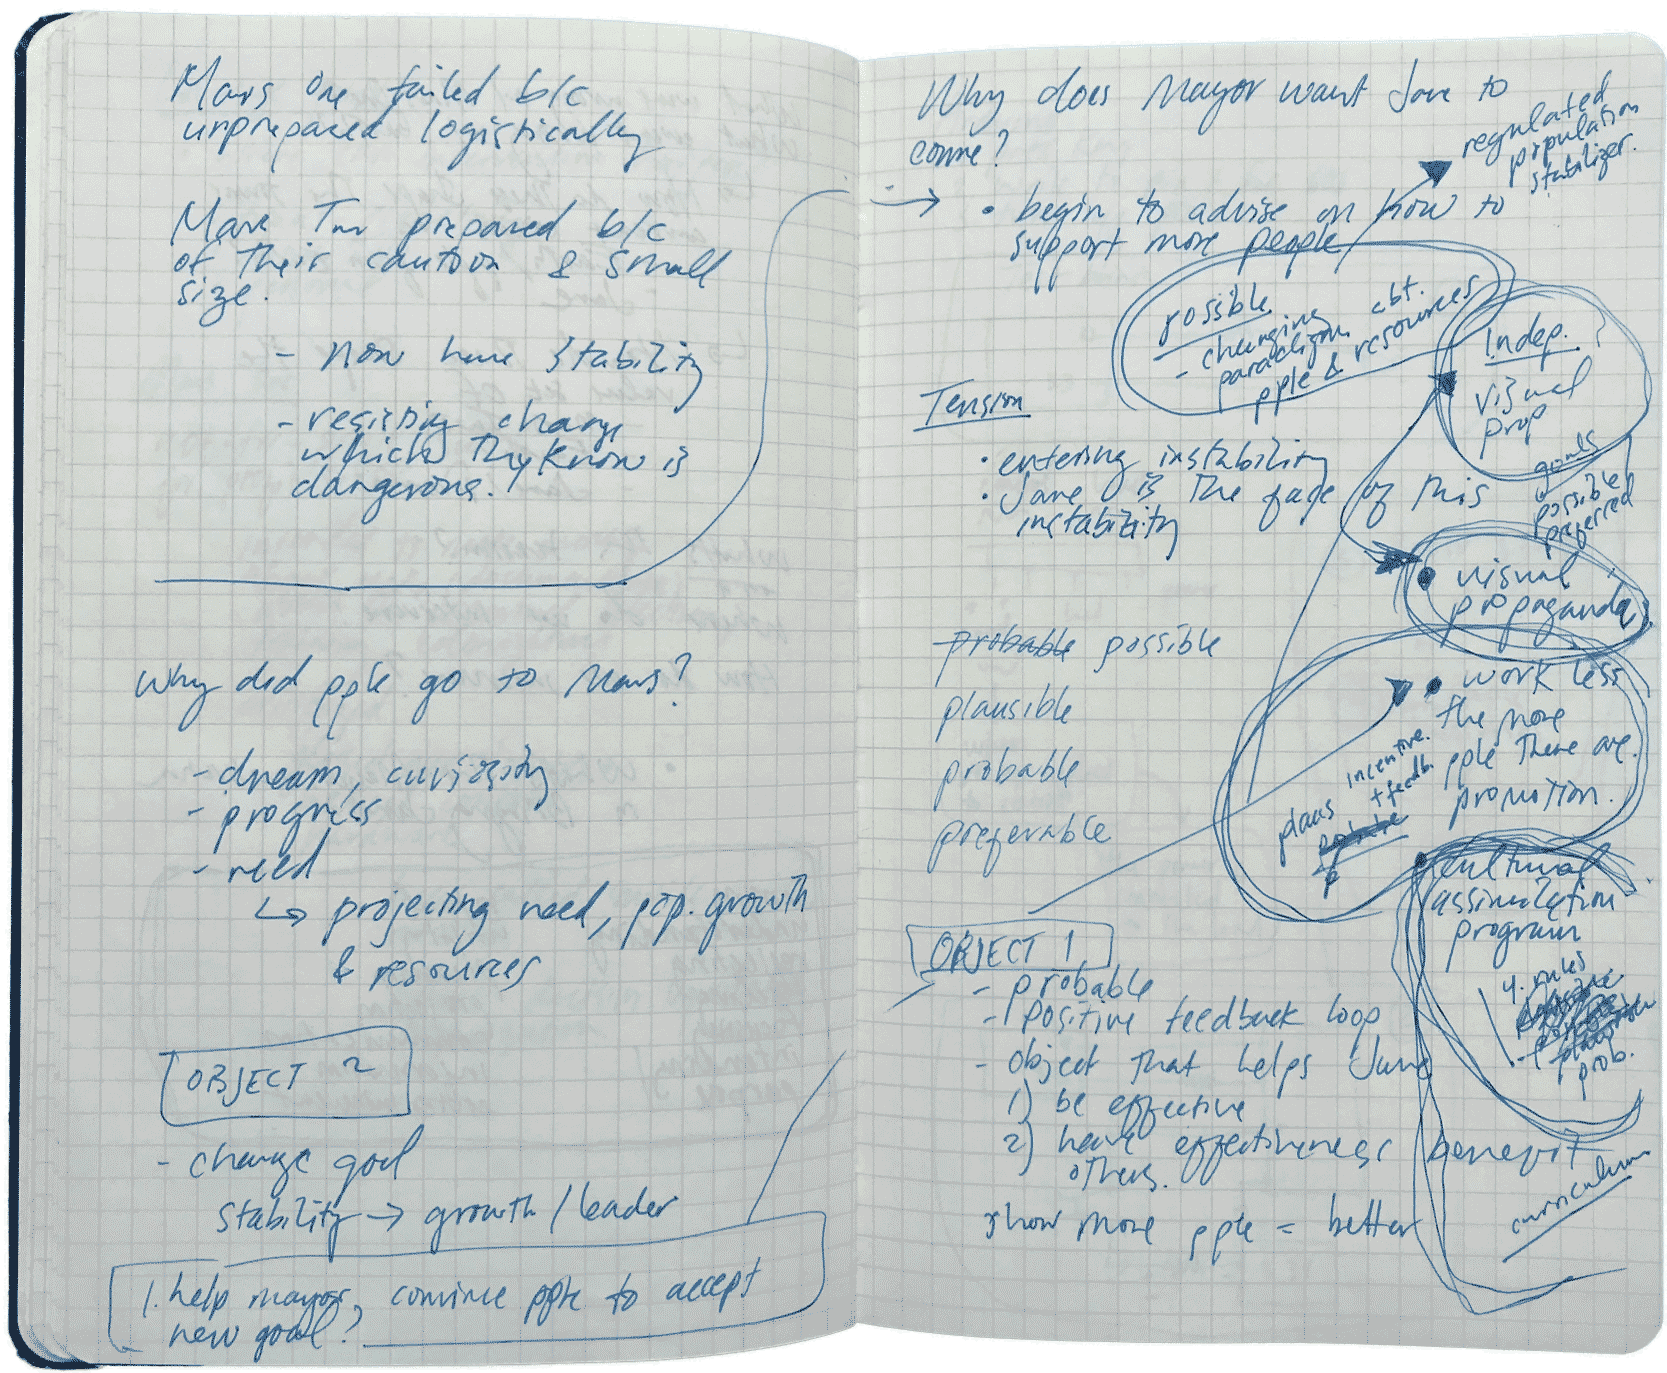 Mars One failed b/c
unprepared logistically
Mars Two prepared b/c
of their caution & small
size.
- now have stability
- resisting change
which they know is
dangerous.
Why did pple go to Mars?
- dream, curiosity
- progress
- need
↳ projecting need, pop. growth
& resources
OBJECT 2
- change goal
stability → growth/leader
1. help mayor, convince pple to accept
new goal?
Why does Mayor want Jane to
come?
→ • begin to advise on how to
support more people
regulated
population
stabilizer.
possible
- changing
paradigm abt.
pple & resources
Indep.
visual
prop
goals
possible
preferred
Tension
• entering instability
• Jane is the face of this
instability
• visual
propaganda
probable possible
plausible
probable
preferable
• work less
the more
pple there are.
promotion.
incentive.
+ feedb.
plaus
• cultural
assimilation
program
4. rules
prob.
curriculum
OBJECT 1
- probable
- positive feedback loop
- object that helps Jane
1) be effective
2) have effectiveness benefit
others.
show more pple = better